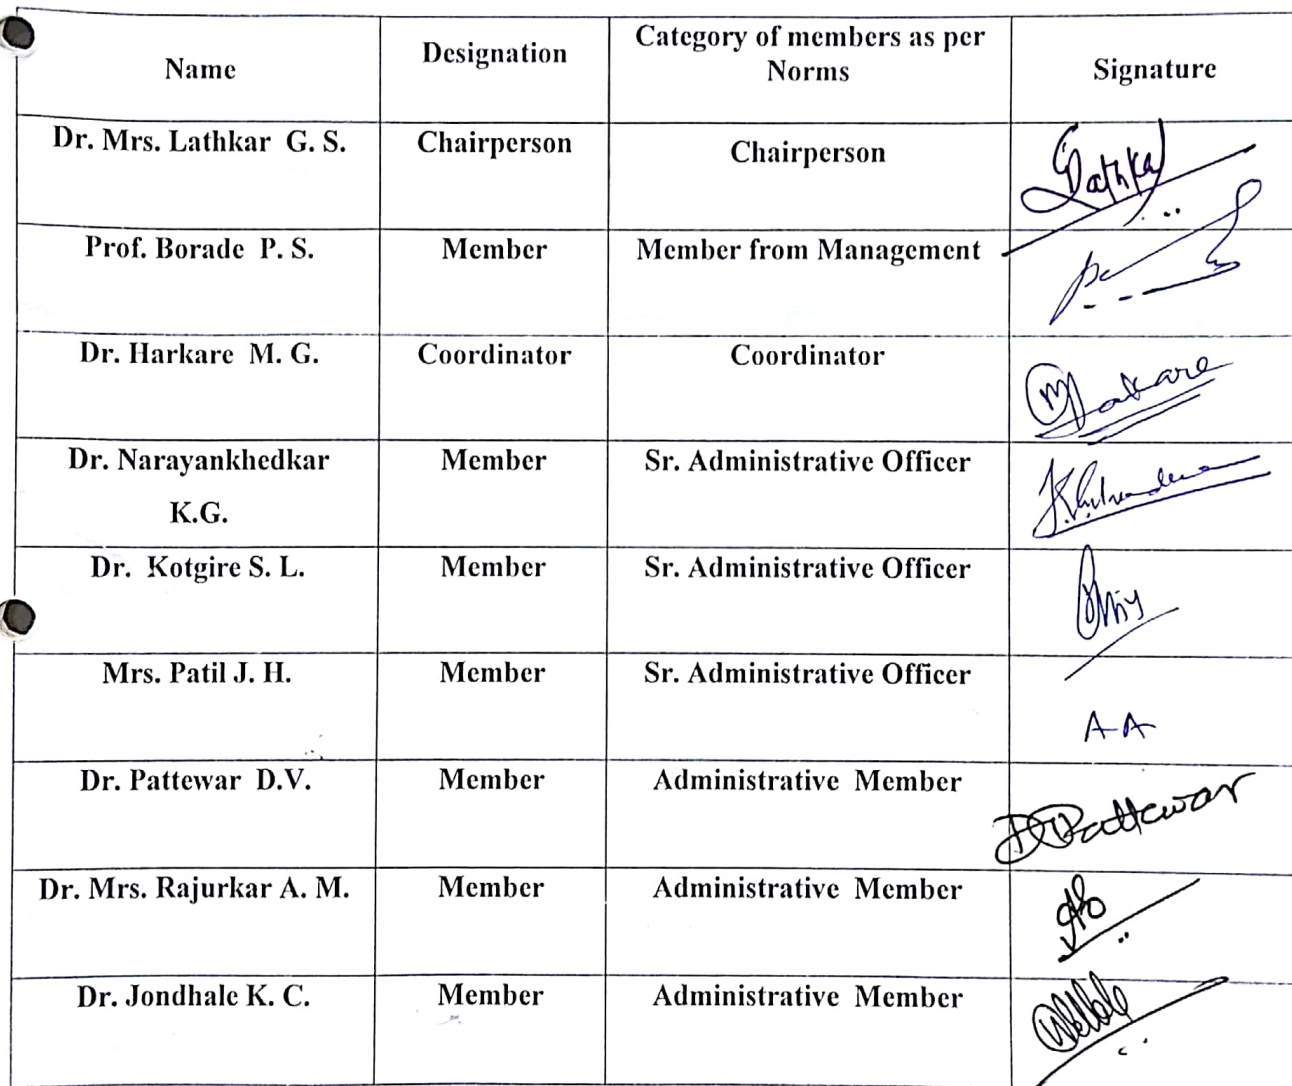 Name Designation Category of members as per
Norms Signature
Dr. Mrs. Lathkar G. S. Chairperson Chairperson
Prof. Borade P. S. Member Member from Management
Dr. Harkare M. G. Coordinator Coordinator
Dr. Narayankhedkar Member Sr. Administrative Officer
K.G.
Dr. Kotgire S. L. Member Sr. Administrative Officer
Mrs. Patil J. H. Member Sr. Administrative Officer
A-A
Dr. Pattewar D.V. Member Administrative Member
DPattewar
Dr. Mrs. Rajurkar A. M. Member Administrative Member
Dr. Jondhale K. C. Member Administrative Member